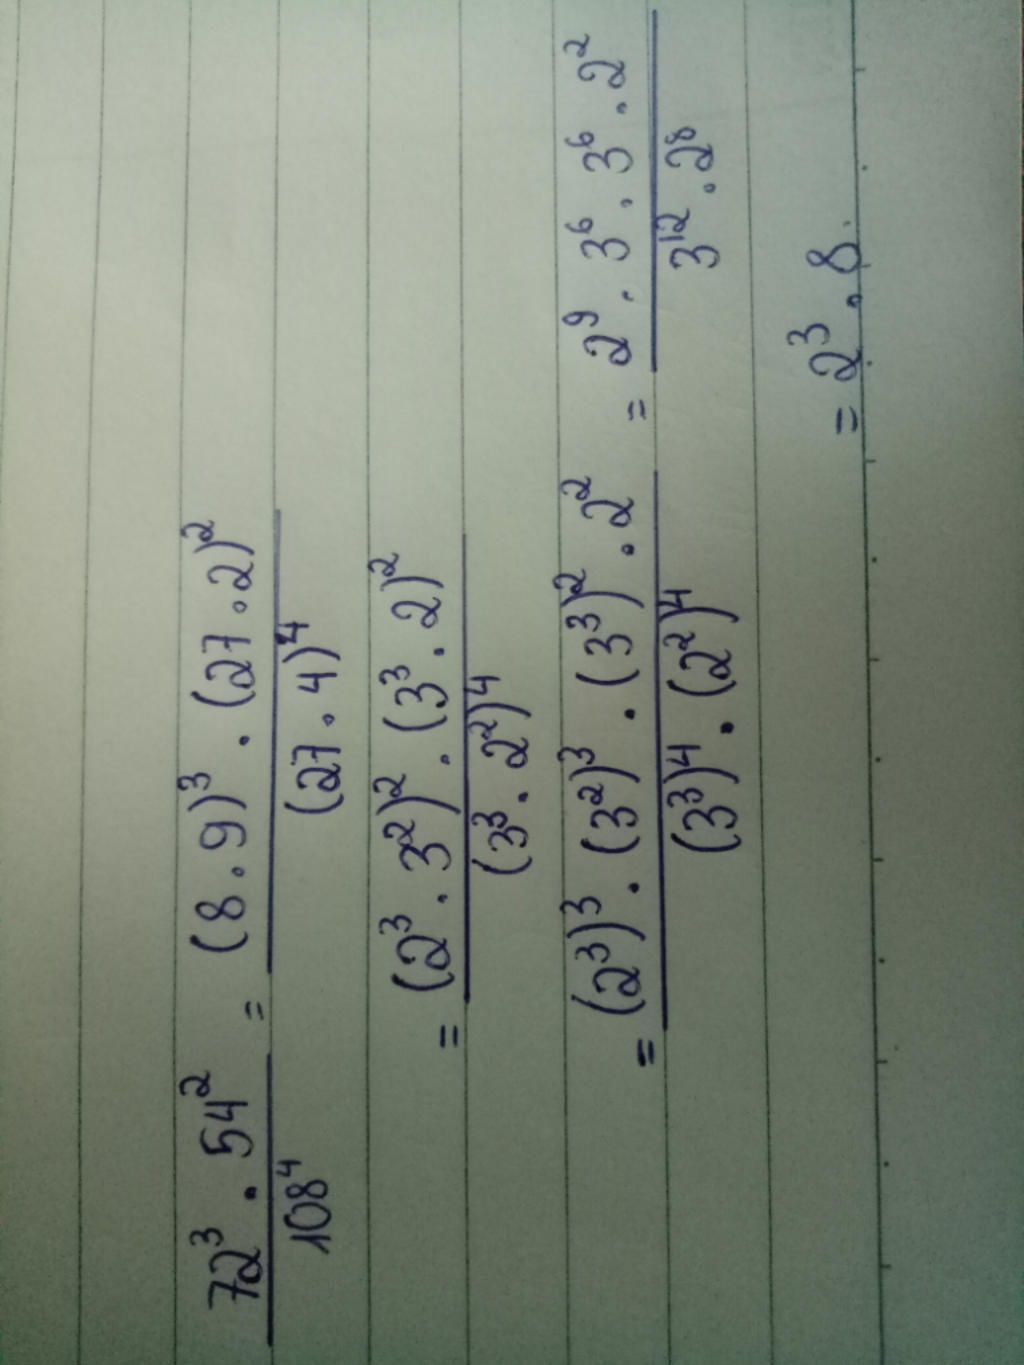 72³ . 54² / 108⁴ = (8.9)³ . (27.2)² / (27.4)⁴
= (2³ . 3²)² . (3³ . 2)² / (3³ . 2²)⁴
= (2³)³ . (3²)³ . (3³)² . 2² / (3³)⁴ . (2²)⁴ = 2⁹ . 3⁶ . 3⁶ . 2² / 3¹² . 2⁸
= 2³ . 8